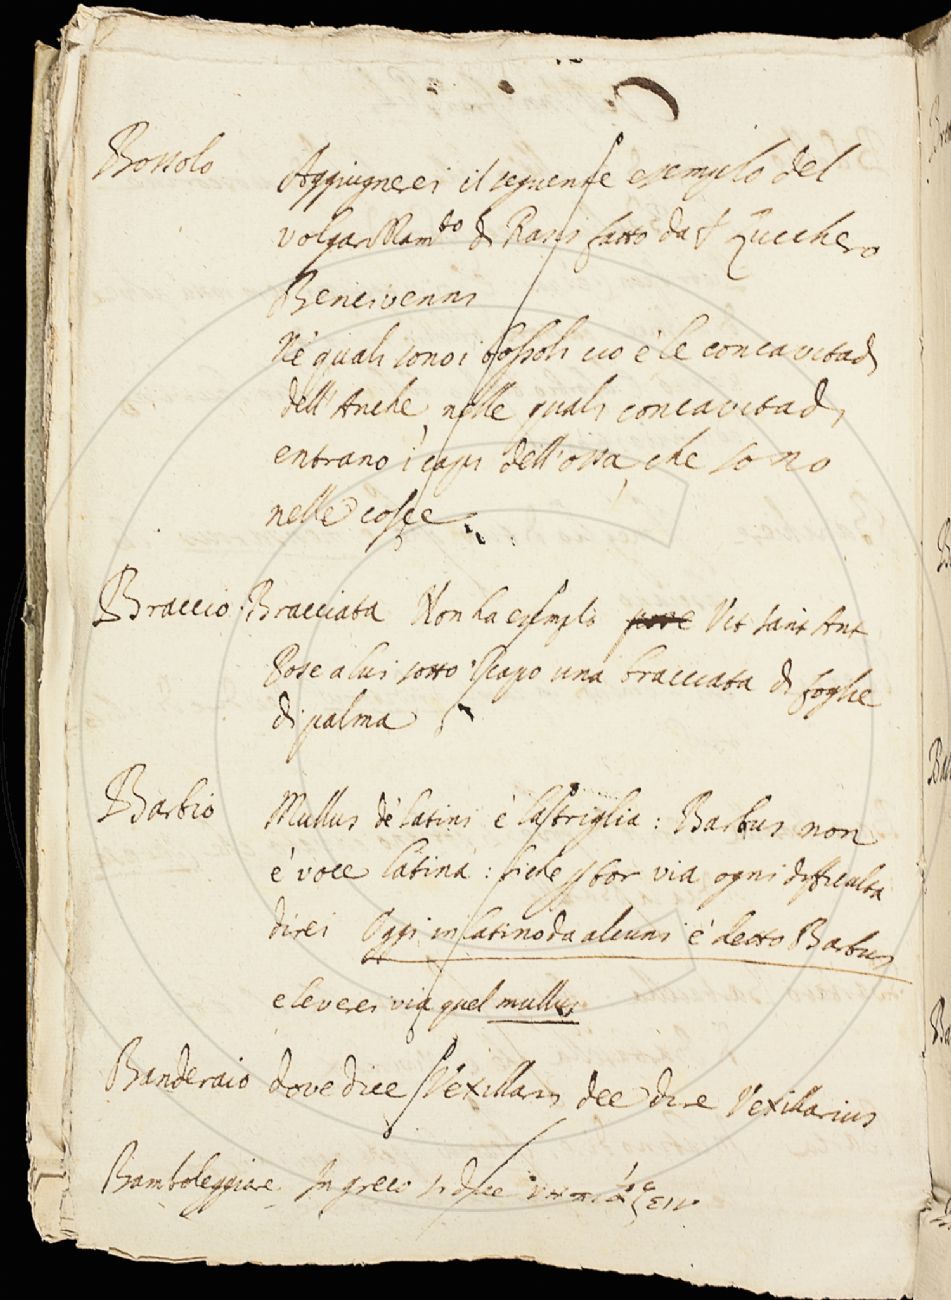 Bossolo Aggiugnerei il seguente esemplo del
volgarizzam.to di Rasis fatto da S. Zucchero
Bencivenni
Ne' quali sono i bossoli cio è le concavitadi
dell'Anche, nelle quali concavitadi,
entrano i capi dell'ossa, che sono
nelle cosce
Braccio. Bracciata Non ha esemplo pose Vit sant Ant
Pose a lui sotto 'l capo una bracciata di foglie
di palma
Barbio Mullus de' latini è la triglia: Barbus non
è voce latina: si che per tor via ogni difficulta
direi Oggi in latino da alcuni è detto Barbus
e leverei via quel mullus
Banderaio dove dice Vexillaris dee dire Vexillarius
Bamboleggiare. In greco si dice νηπιάζειν